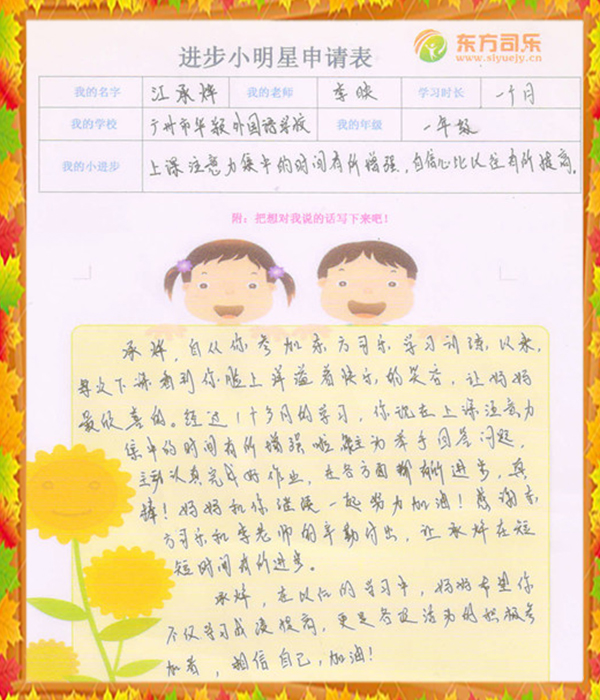 东方司乐
www.siyuejy.cn
进步小明星申请表
我的名字 江承烨 我的老师 李映 学习时长 一个月
我的学校 广州市华颖外国语学校 我的年级 一年级
我的小进步 上课注意力集中的时间有所增强,自信心比以往有所提高。
附:把想对我说的话写下来吧!
承烨,自从你参加东方司乐学习训练以来,
每次下课看到你脸上洋溢着快乐的笑容,让妈妈
最欣喜的。经过1个多月的学习,你说在上课注意力
集中的时间有所增强啦,能主动举手回答问题,
主动认真完成好作业,在各方面都有所进步,真
棒!妈妈和你继续一起努力加油!感谢东
方司乐和李老师的辛勤付出,让承烨在短
短时间有所进步。
承烨,在以后的学习中,妈妈希望你
不仅学习成绩提高,更是各项活动的积极参
加者,相信自己,加油!